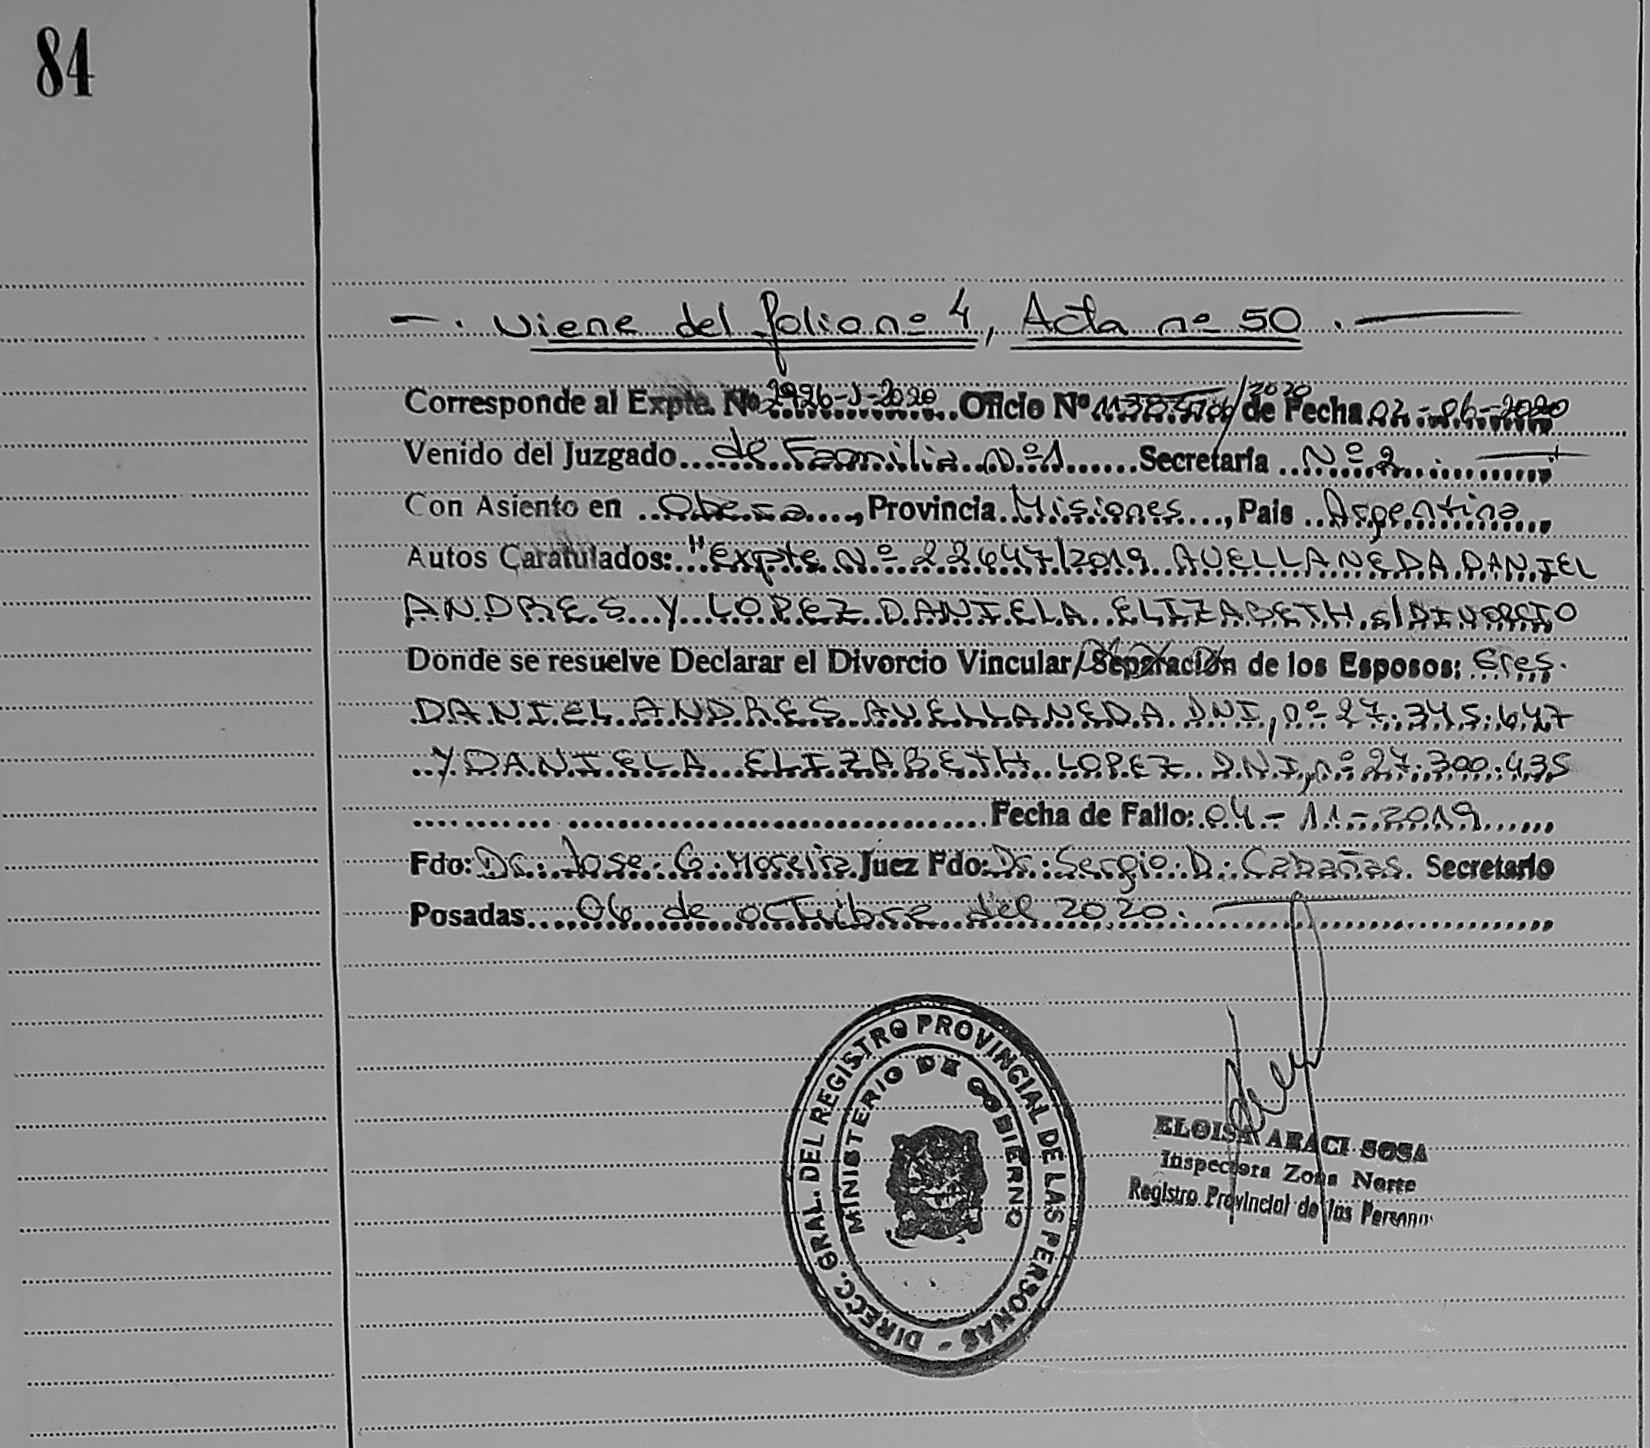 84
—. Viene del folio nº 4, Acta nº 50. —
Corresponde al Expte. Nº 2926-J-2020 Oficio Nº /2020 de Fecha 02-06-2020
Venido del Juzgado de Familia Nº1 Secretaría Nº 2
Con Asiento en Obera, Provincia Misiones, Pais Argentina
Autos Caratulados: "Expte Nº 22647/2019 AVELLANEDA DANIEL
ANDRES Y LOPEZ DANIELA ELIZABETH s/DIVORCIO
Donde se resuelve Declarar el Divorcio Vincular/Separación de los Esposos: Sres.
DANIEL ANDRES AVELLANEDA DNI, nº 27.345.647
Y DANIELA ELIZABETH LOPEZ DNI, nº 27.300.435
Fecha de Fallo: 04-11-2019
Fdo: Dr. Jose G. Moreira Juez Fdo: Dr. Sergio D. Cabañas. Secretario
Posadas 06 de octubre del 2020.
DIRECC. GRAL. DEL REGISTRO PROVINCIAL DE LAS PERSONAS -
MINISTERIO DE GOBIERNO
ELOISA ARACI SOSA
Inspectora Zona Norte
Registro Provincial de las Personas